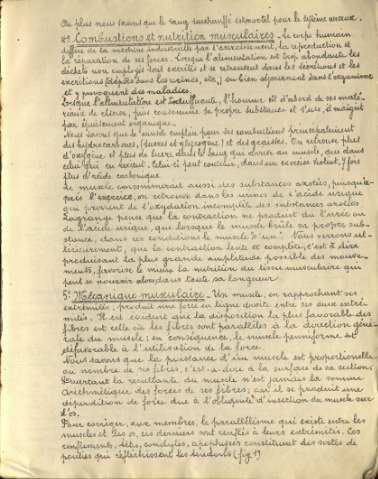 De plus nous savons que le sang surchauffé est mortel pour le système nerveux.
4° Combustions et nutrition musculaires _ Le corps humain
diffère de la machine industrielle par l'accroissement, la reproduction et
la réparation de ses forces. Lorsque l'alimentation est trop abondante les
déchets non employés sont excrétés et se retrouvent dans les sécrétions et les
excrétions (dépôts dans les urines, etc.,) ou bien séjournent dans l'organisme
et y provoquent des maladies.
Lorsque l'alimentation est insuffisante, l'homme vit d'abord de ses maté-
riaux de réserve, puis consomme sa propre substance et s'use, il maigrit
par épuisement organique.
Nous savons que le muscle emploie pour ses combustions principalement
des hydrocarbones, (sucres et glycogène) et des graisses. On retrouve plus
d'oxygène et plus de sucre dans le sang qui aborde au muscle, que dans
celui qui en revient. Celui-ci peut contenir, dans un exercice violent, 7 fois
plus d'acide carbonique.
Le muscle consommerait aussi des substances azotées, puisqu'a-
près l'exercice, on retrouve dans les urines de l'acide urique
qui provient de l'oxydation incomplète des substances azotées
Lagrange pense que la contraction ne produit de l'urée ou
de l'acide urique, que lorsque le muscle brûle sa propre sub-
stance, dans ces conditions le muscle s'use. Nous verrons ul-
térieurement, que la contraction lente et complète, c'est à dire
produisant la plus grande amplitude possible des mouve-
ments, favorise le mieux la nutrition du tissu musculaire qui
peut se nourrir alors dans toute sa longueur.
5° Mécanique musculaire _ Un muscle, en rapprochant ses
extrémités, produit une ligne droite entre ses deux extré-
mités. Il est évident que la disposition la plus favorable des
fibres est celle où les fibres sont parallèles à la direction géné-
rale du muscle ; en conséquence, le muscle penniforme est
défavorable à l'utilisation de la force.
Nous savons que la puissance d'un muscle est proportionnelle
au nombre de ses fibres, c'est-à-dire à la surface de sa section,
pourtant la résultante du muscle n'est jamais la somme
arithmétique des forces de ses fibres ; car il se produit une
déperdition de force due à l'obliquité d'insertion du muscle sur
l'os.
Pour corriger, aux membres, le parallélisme qui existe entre les
muscles et les os, ces derniers sont renflés à leurs extrémités. Ces
renflements, têtes, condyles, apophyses constituent des sortes de
poulies qui réfléchissent les tendons (fig 1)